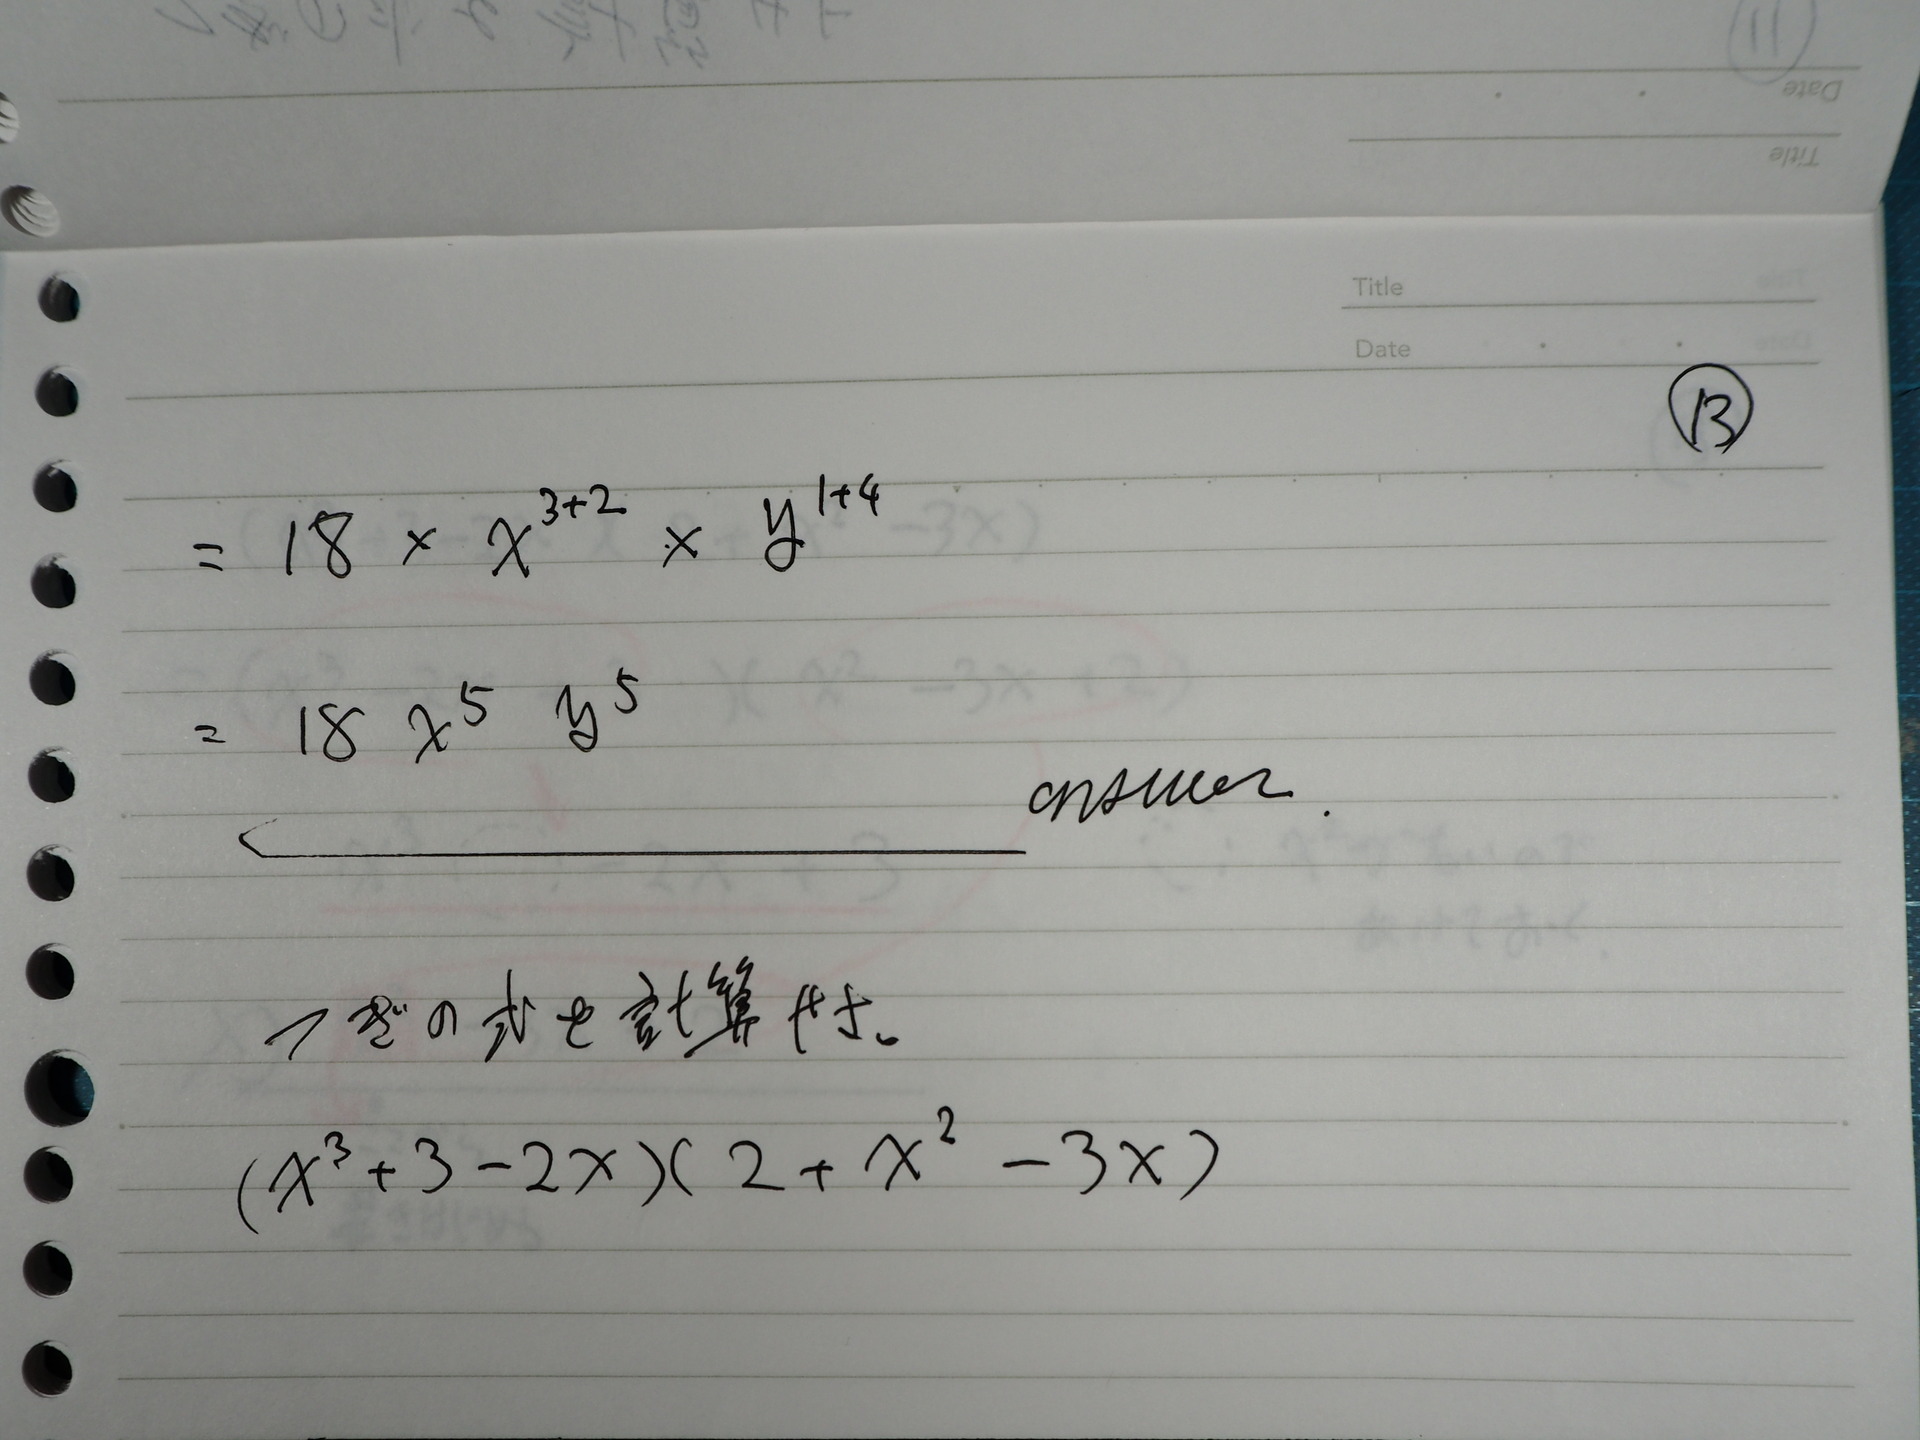 Date
Title
Title
Date
⑬
= 18 × x³⁺² × y¹⁺⁴
= 18 x⁵ y⁵
answer.
つぎの式を計算せよ。
(x³+3-2x)(2+x²-3x)